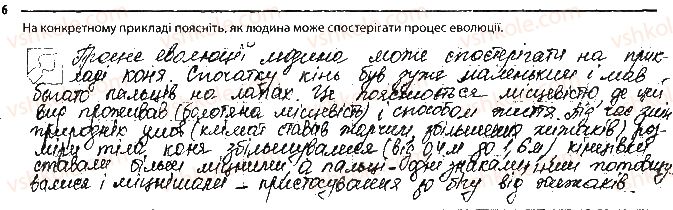 6
На конкретному прикладі поясніть, як людина може спостерігати процес еволюції.
Процес еволюції людина може спостерігати на прик-
ладі коня. Спочатку кінь був дуже маленьким і мав
багато пальців на лапах. Це пояснюється місцевістю, де цей
вид проживав (болотяна місцевість) і способом життя. Під час змін
природних умов (клімат ставав жарким, збільшення хижаків) роз-
міри тіла коня збільшувалися (від 0,4м до 1,6м) кінцівки
ставали більш міцними, а пальці
валися і міцнішали - пристосування до бігу від хижаків.